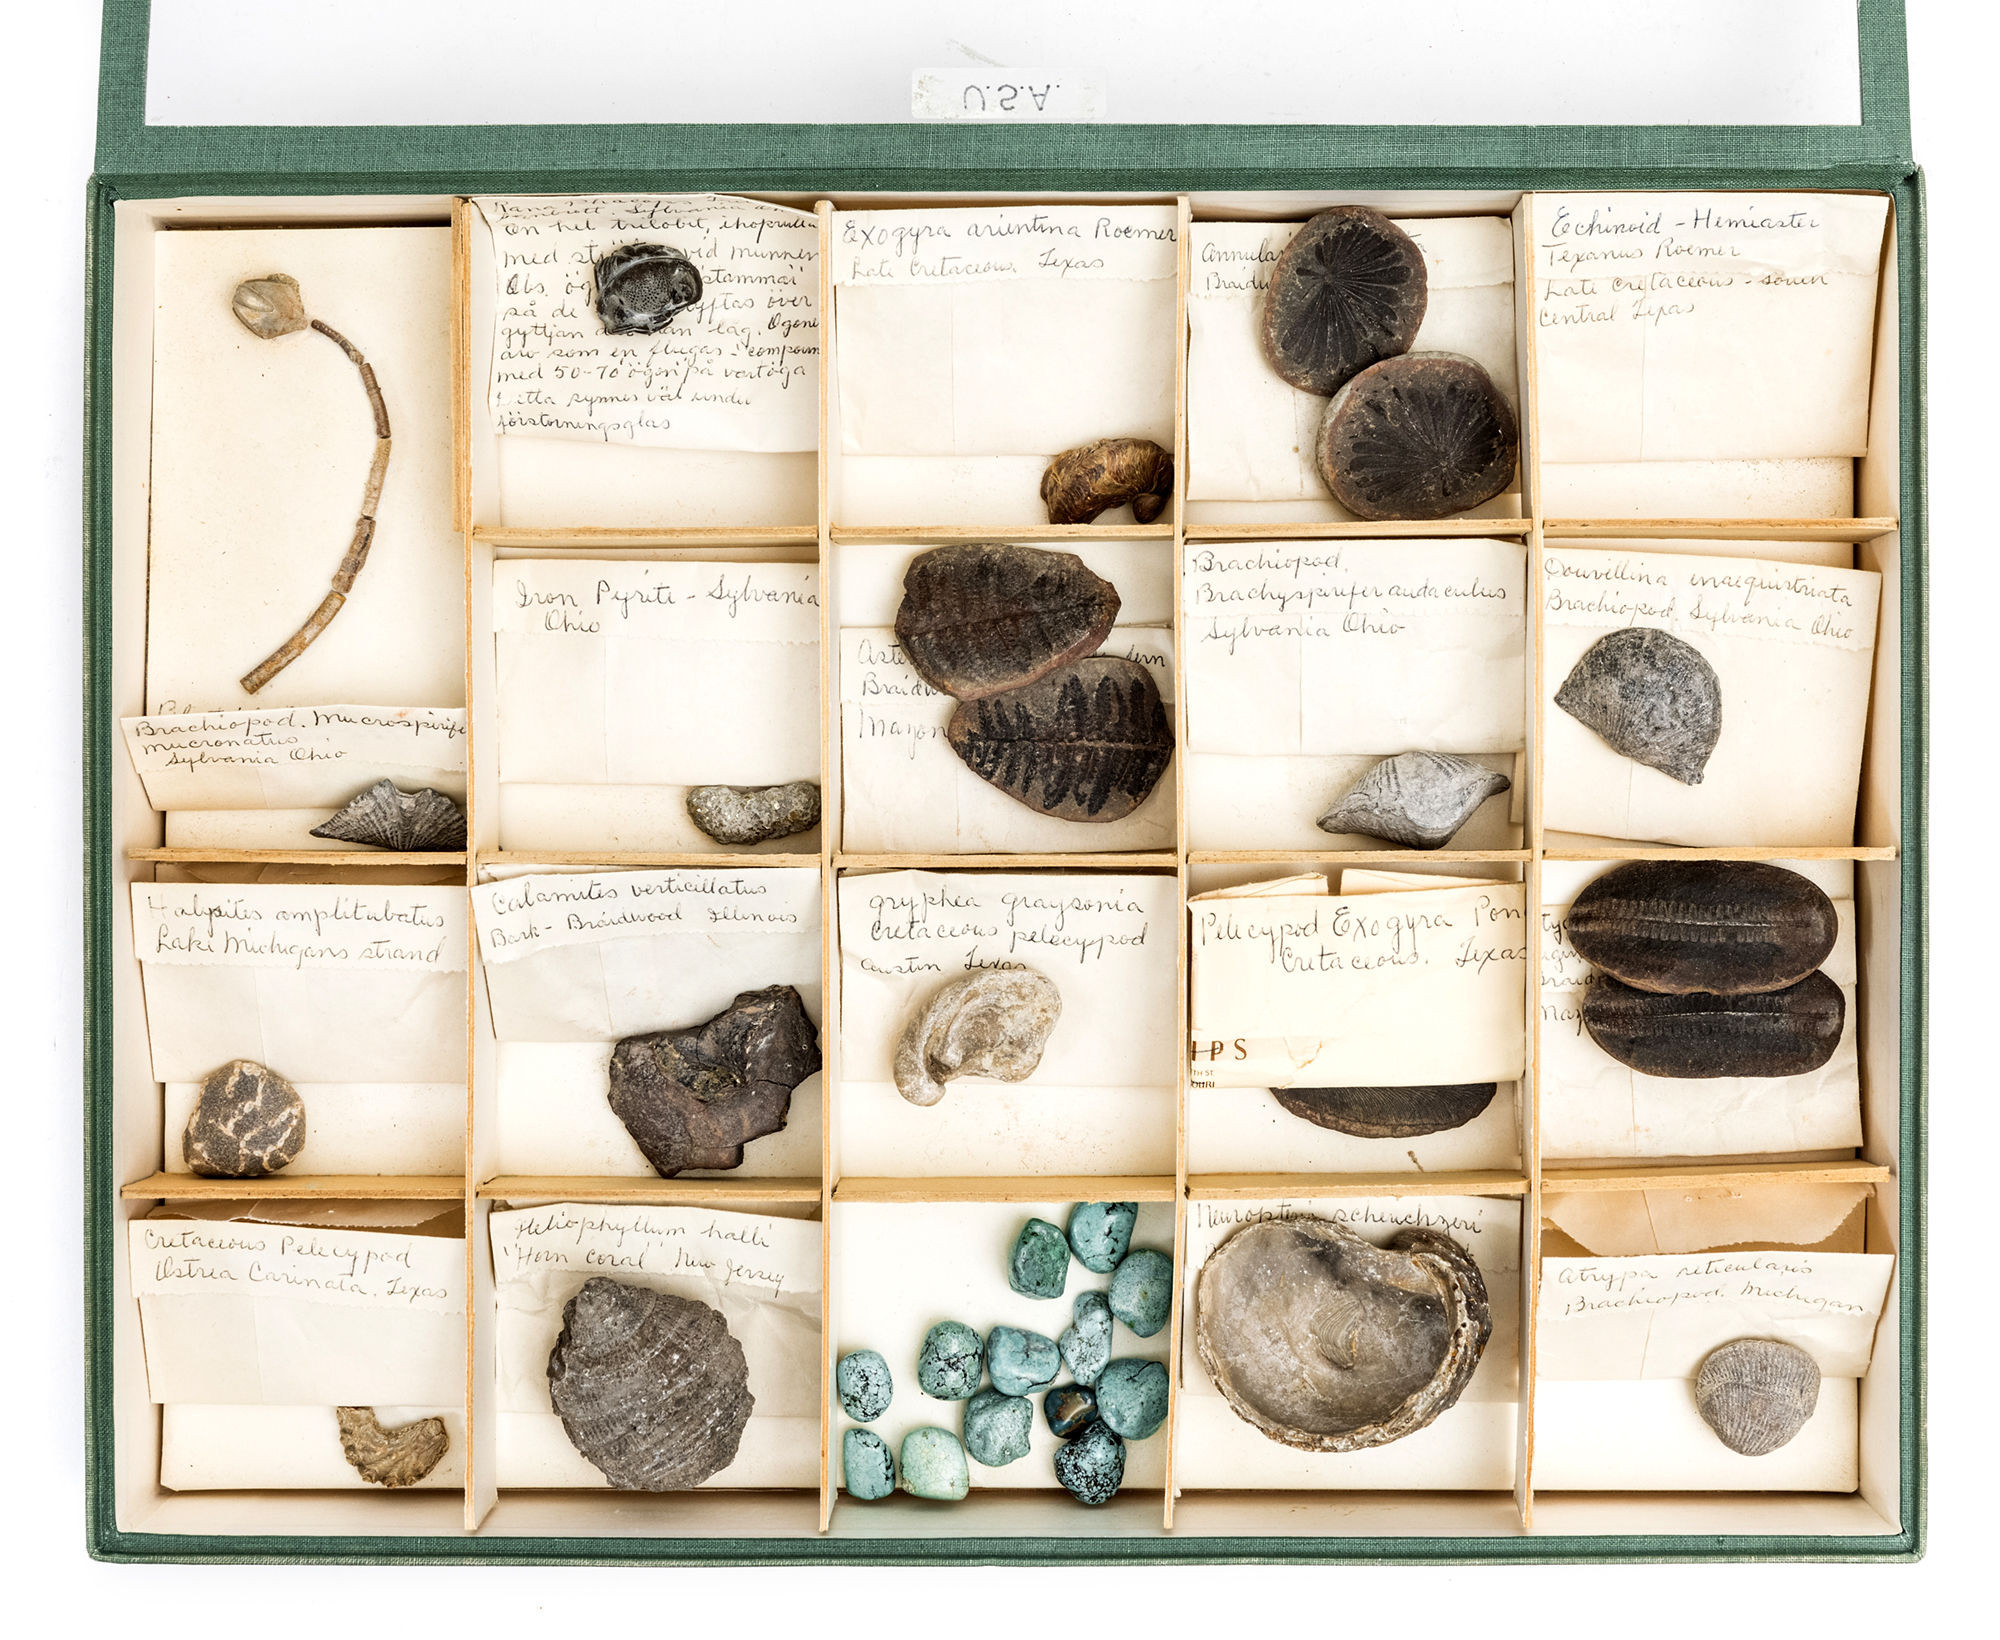 U.S.A.
en hel trilobit, ihoprullad
med vid munnen
Obs. ög stammai
på de lyftas över
gyttjan han låg. Ögone
äro som en flugas - "compoun
med 50-70 ögon på vartöga
Detta synnes väl under
förstorningsglas
Exogyra arientina Roemer
Late Cretaceous. Texas
Annular
Braidw
Echinoid - Hemiaster
Texanus Roemer
Late Cretaceous - souen
Central Texas
Brachiopod. Mucrospirife
mucronatus
Sylvania Ohio
Iron Pyrite - Sylvania
Ohio
Aste fern
Braidw
Mazon
Brachiopod,
Brachyspirifer audaculus
Sylvania Ohio
Douvillina inaequistriata
Brachiopod, Sylvania Ohio
Halysites amplitubatus
Lake Michigans strand
Calamites verticillatus
Bark - Braidwood Illinois
gryphea graysonia
Cretaceous pelecypod
Austin Texas
Pelecypod Exogyra Pon
Cretaceous. Texas
IPS
TH ST.
OURI
Braid
Maz
Cretaceous Pelecypod
Ostrea Carinata, Texas
Heliophyllum halli
'Horn coral' New Jersey
Neuropteris scheuchzeri
Atrypa reticularis
Brachiopod, Michigan